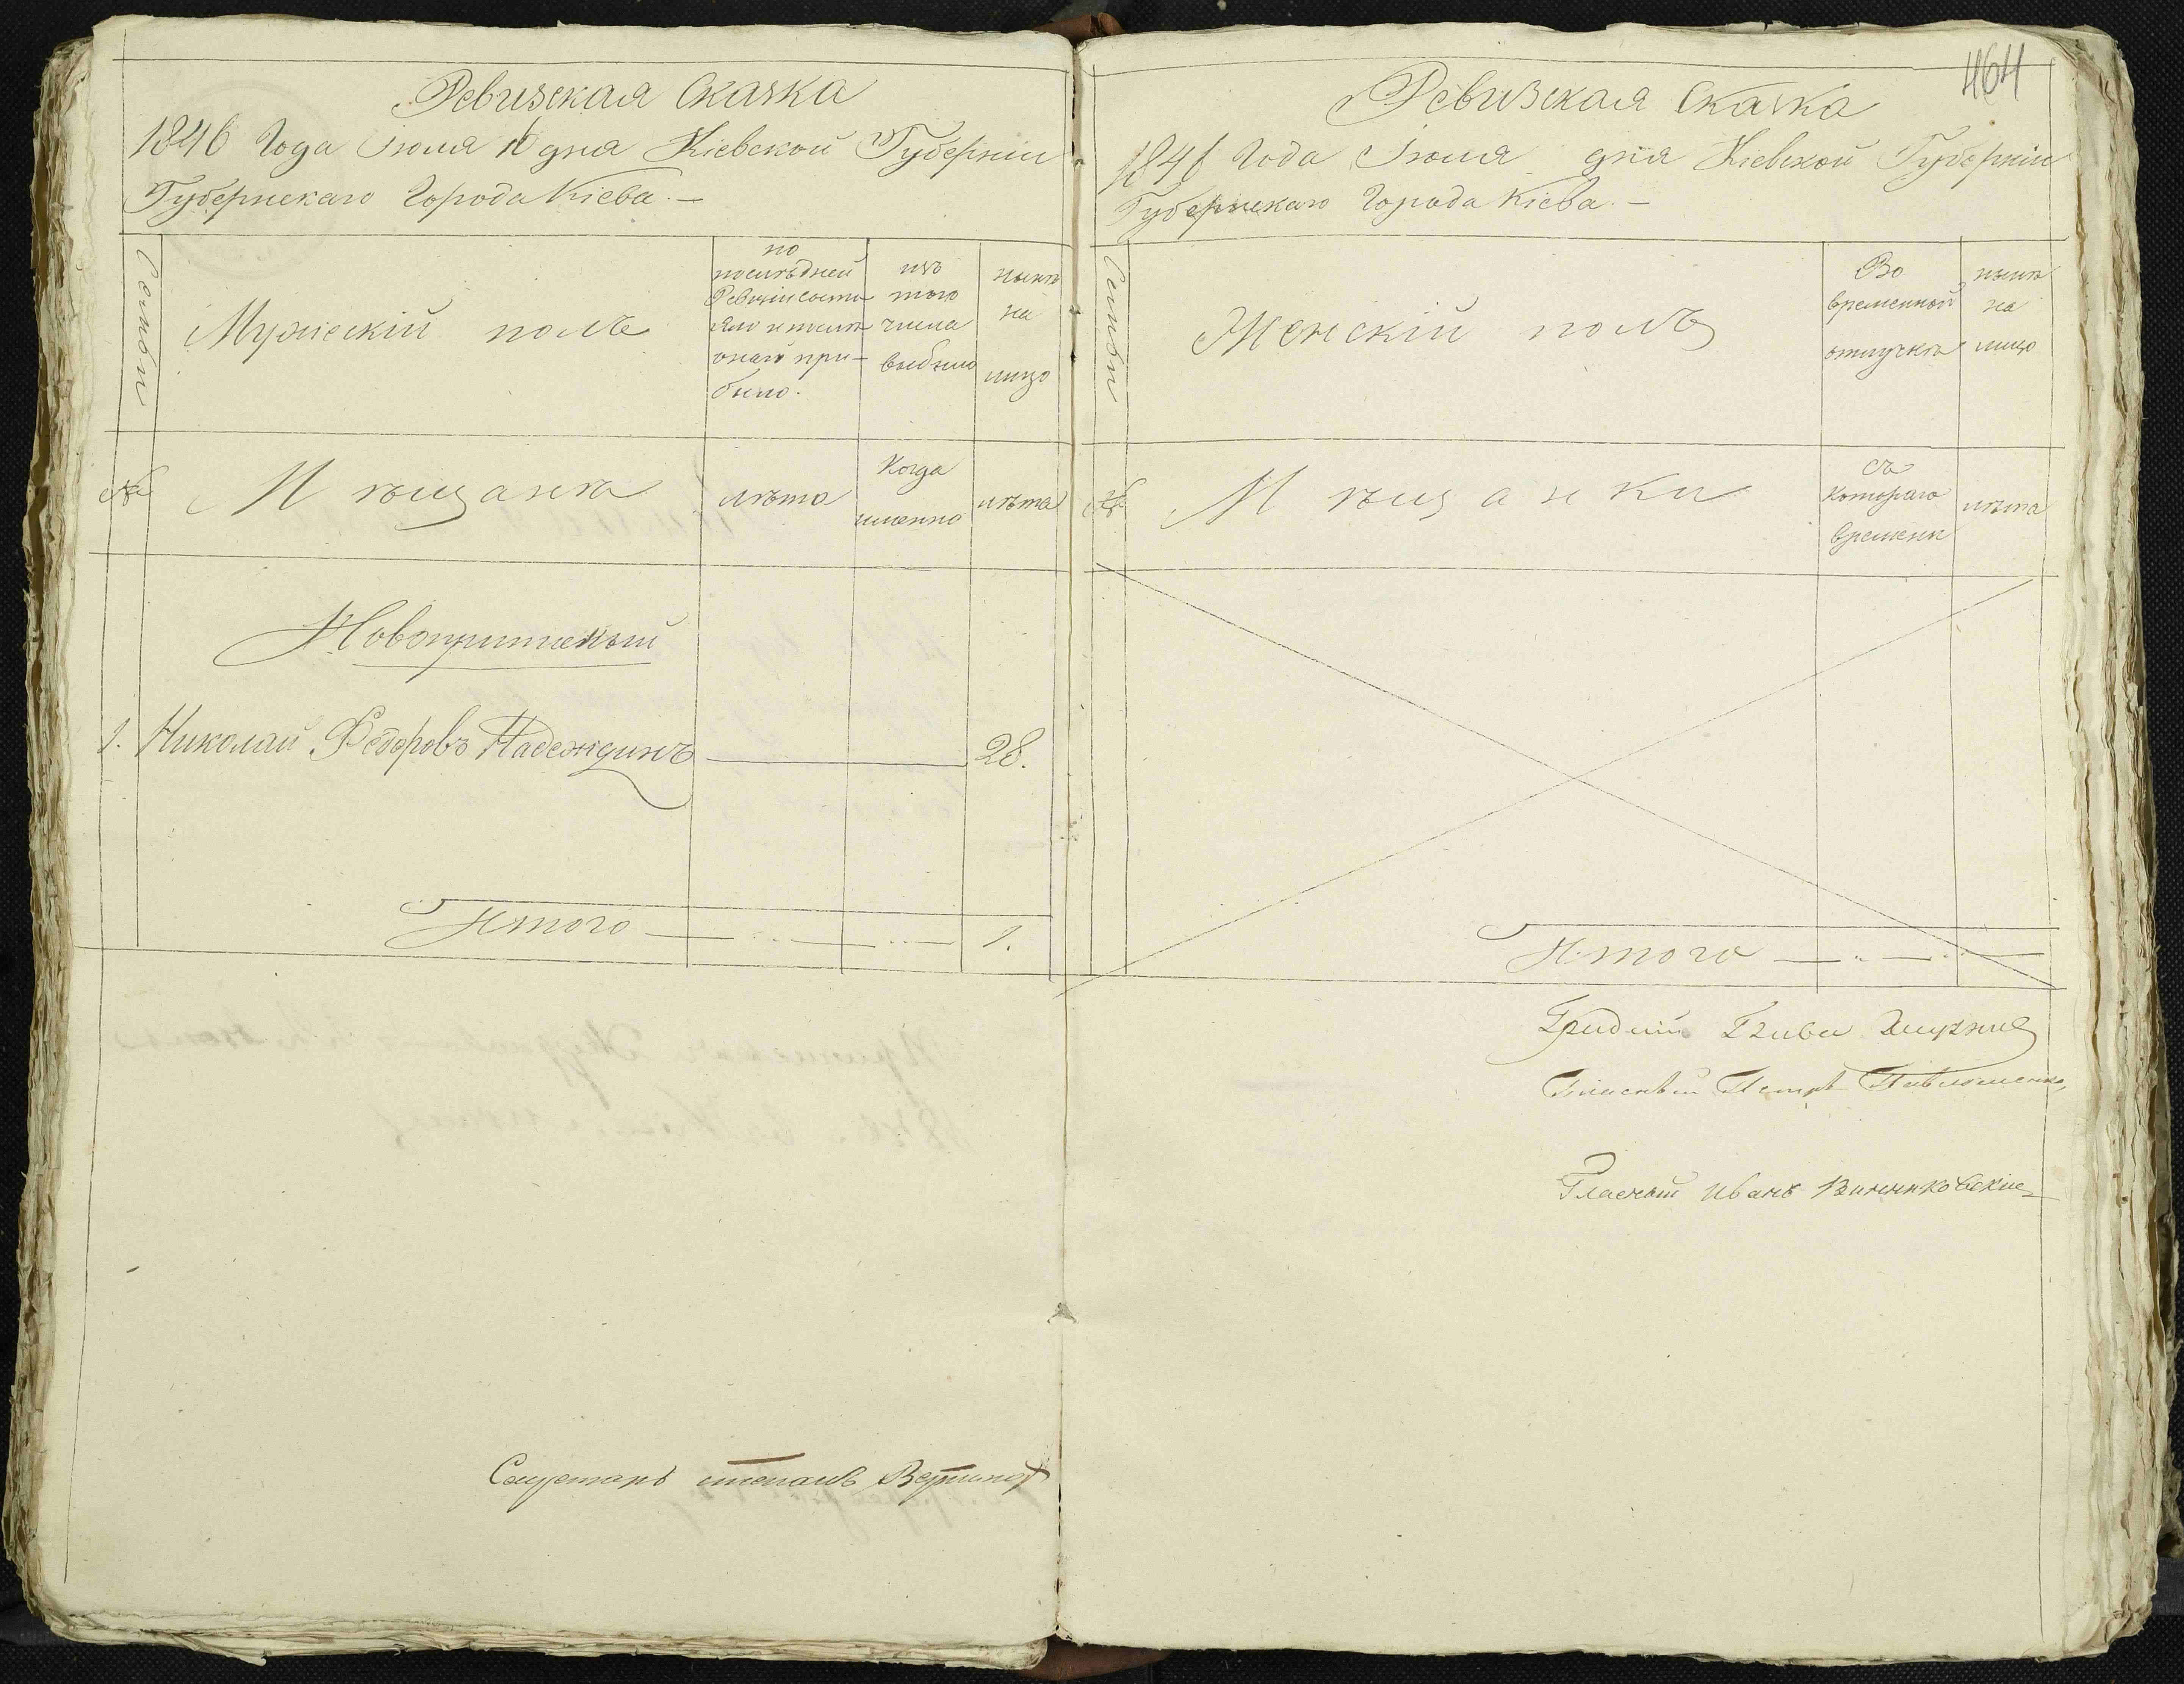 Ревизская Сказка
1846 Года Іюля 16 дня Кіевской Губерніи
Губернскаго Города Кіева. —
Семьи
Мужескій полъ
по
послѣдней
Ревизіи состо-
яло и послѣ
онаго при-
было.
изъ
того
числа
выбыло
нынѣ
на
лицо
№
Мѣщане
лѣта
Когда
именно
лѣта
Новоприписный
1. Николай Федоровъ Надеждинъ 28.
Итого 1.
степанъ
464
Ревизская Сказка
1846 Года Іюля дня Кіевской Губерніи
Губернскаго Города Кіева. —
Семьи
Женскій полъ
Во
временной
отлучкѣ
нынѣ
на
лицо
№
Мѣщанки
съ
Котораго
времени
лѣта
Итого
Гласный Петръ
Гласный Иванъ Винниковскій